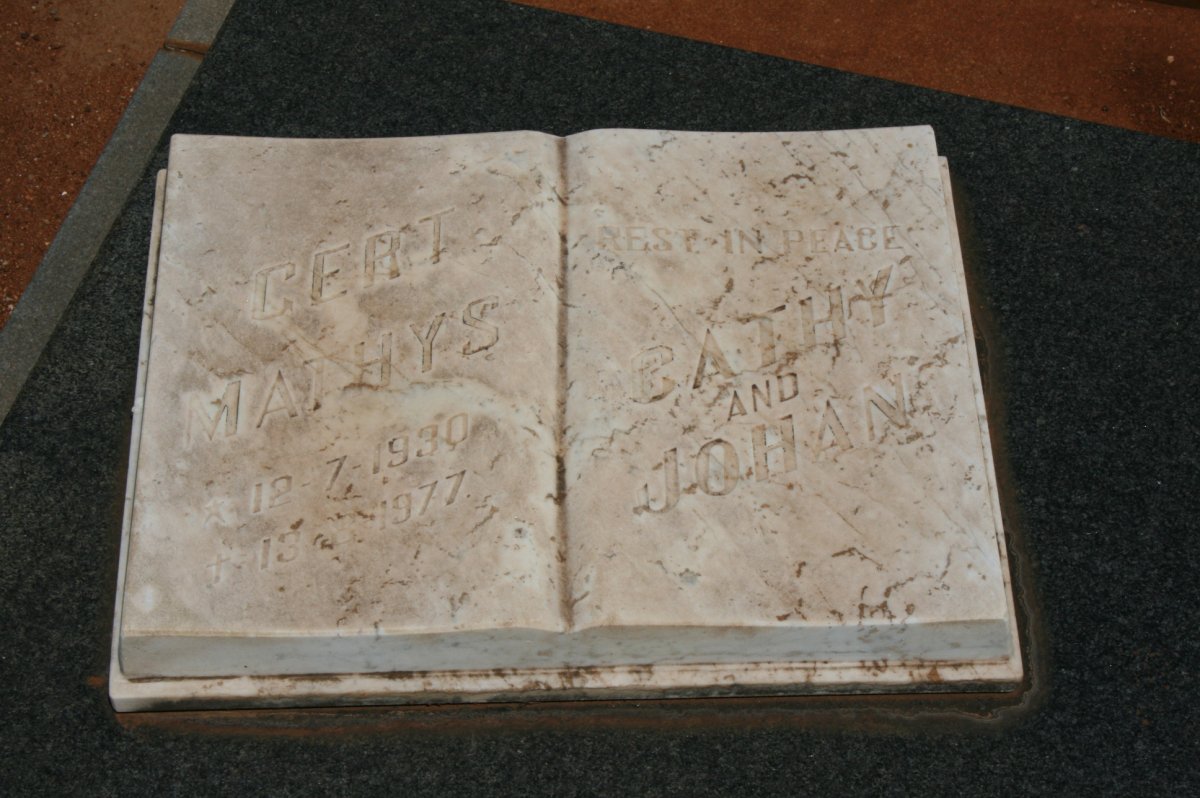 GERT
MATHYS
* 12-7-1930
+ 13 1977
REST IN PEACE
CATHY
AND
JOHAN